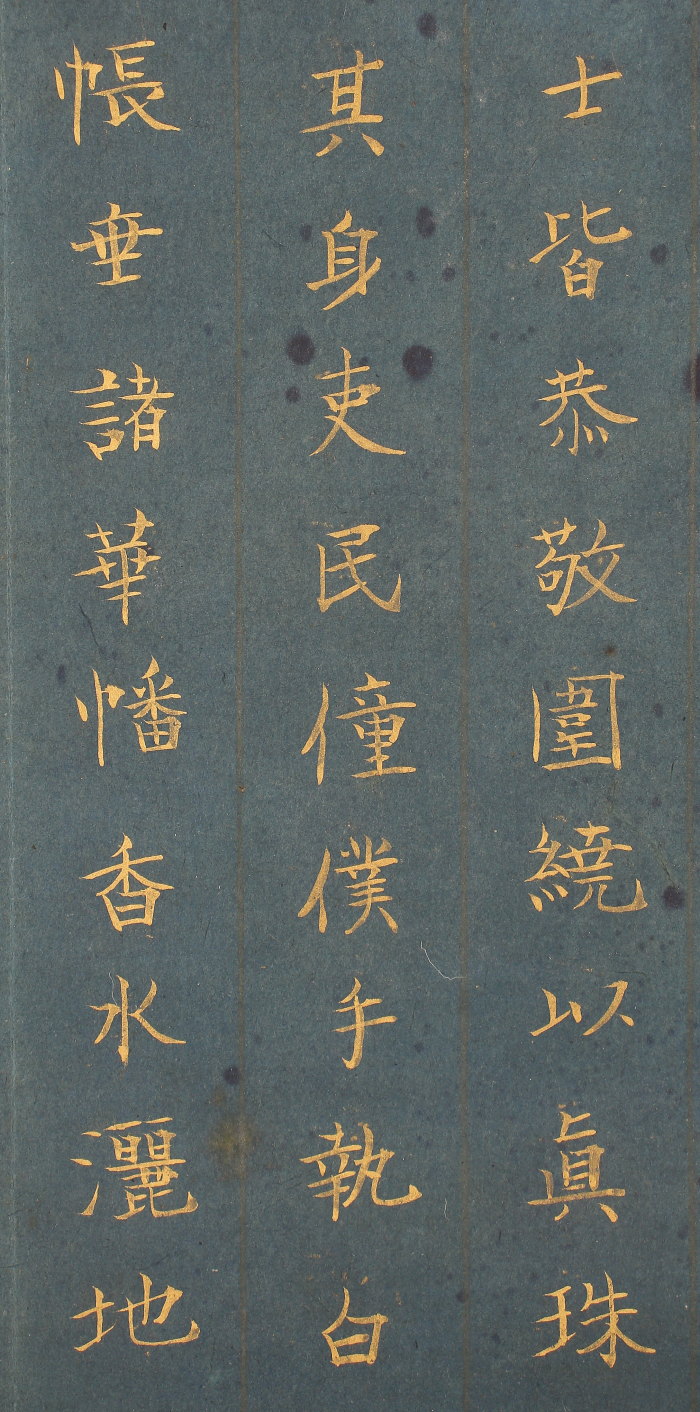 士皆恭敬圍繞以眞珠
其身吏民僮僕手執白
帳垂諸華幡香水灑地